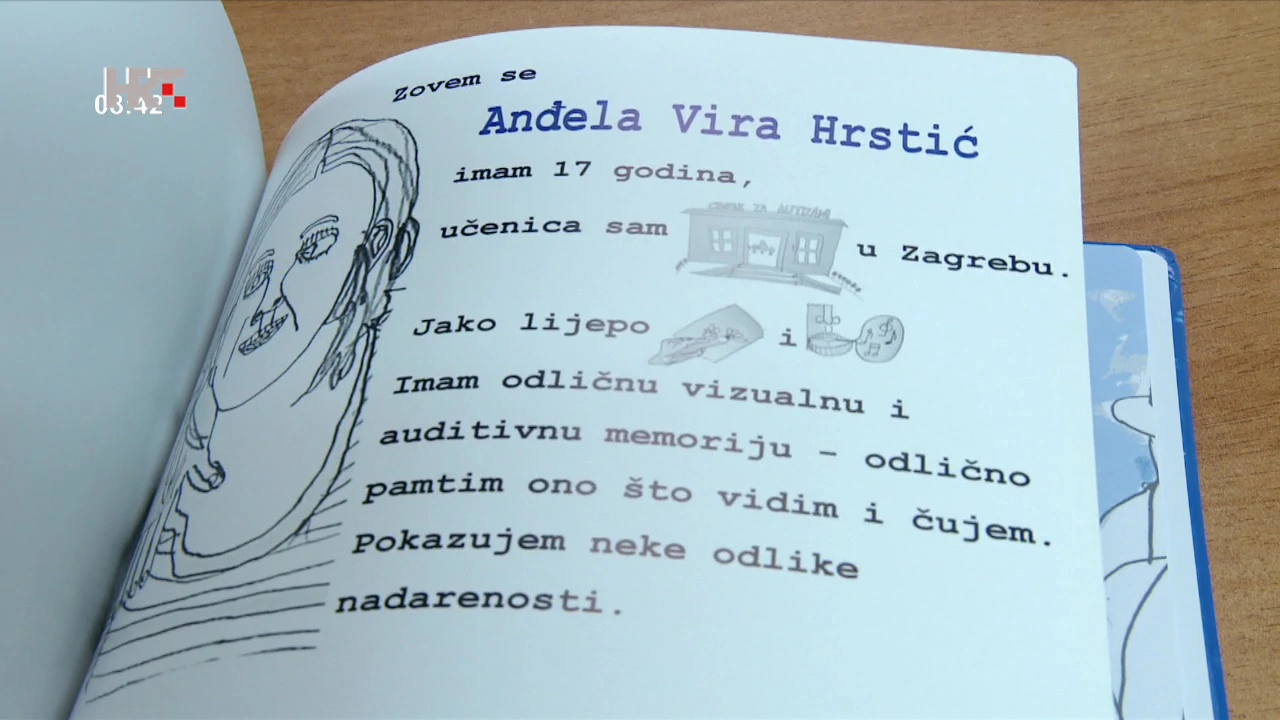 HRT
03:42
Zovem se
Anđela Vira Hrstić
imam 17 godina,
učenica sam
CENTAR ZA AUTIZAM
u Zagrebu.
Jako lijepo i
Imam odličnu vizualnu i
auditivnu memoriju - odlično
pamtim ono što vidim i čujem.
Pokazujem neke odlike
nadarenosti.